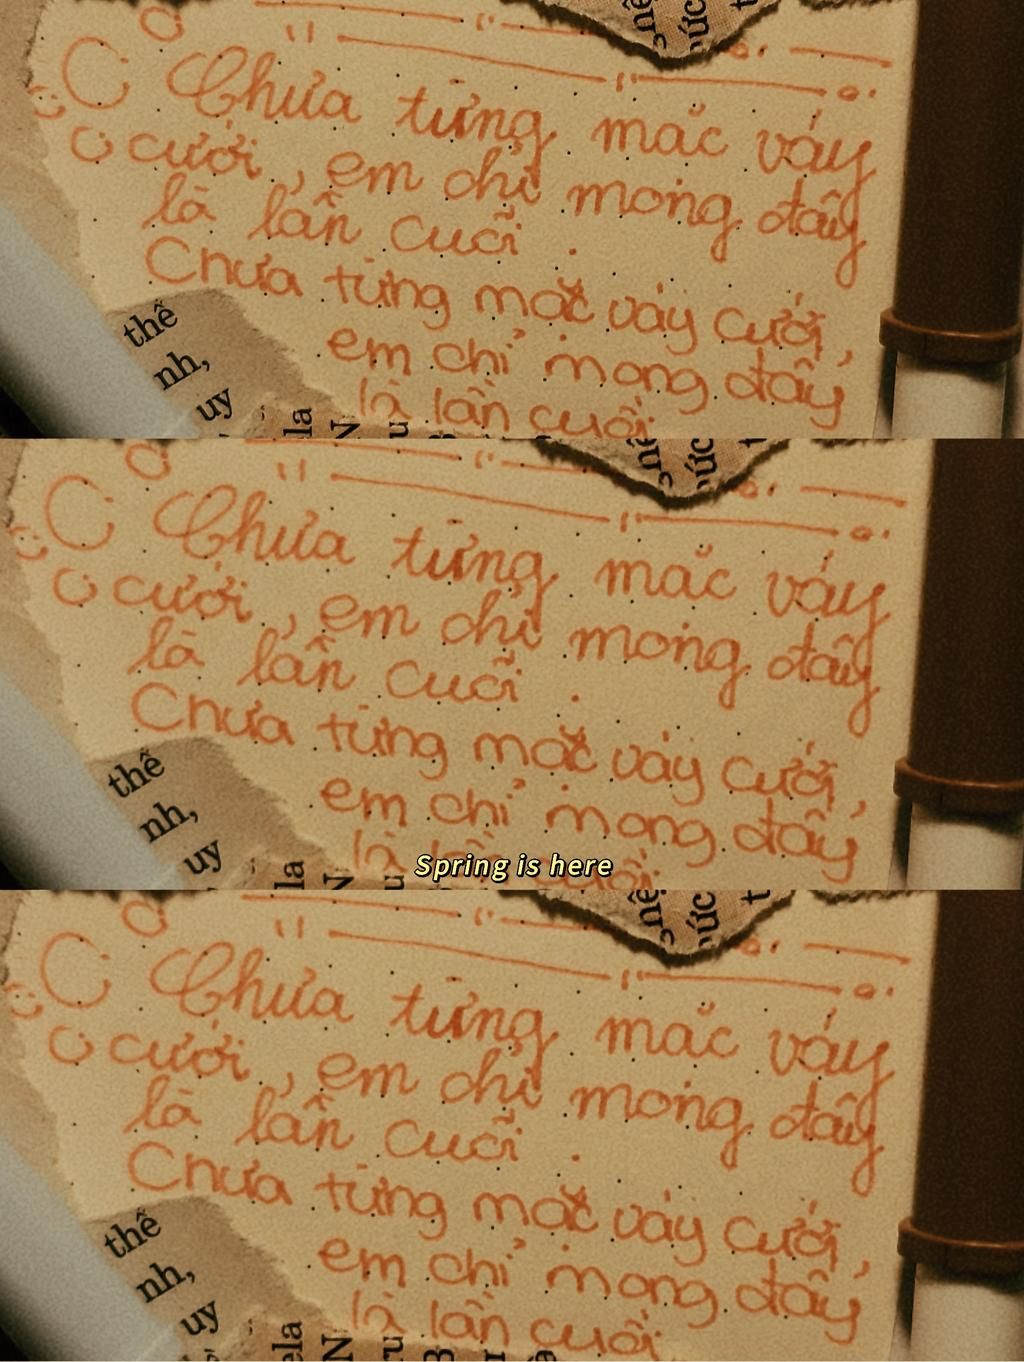 Chưa từng mặc váy
cưới, em chỉ mong đây
là lần cuối.
Chưa từng mặc váy cưới,
em chỉ mong đây
là lần cuối
thê
nh,
uy
ela
N
u
nê
úc
t
Chưa từng mặc váy
cưới, em chỉ mong đây
là lần cuối.
Chưa từng mặc váy cưới,
em chỉ mong đây
là lần cuối
Spring is here
thê
nh,
uy
la
N
u
nê
úc
t
Chưa từng mặc váy
cưới, em chỉ mong đây
là lần cuối.
Chưa từng mặc váy cưới,
em chỉ mong đây
là lần cuối
thê
nh,
uy
ela
N
ru
B